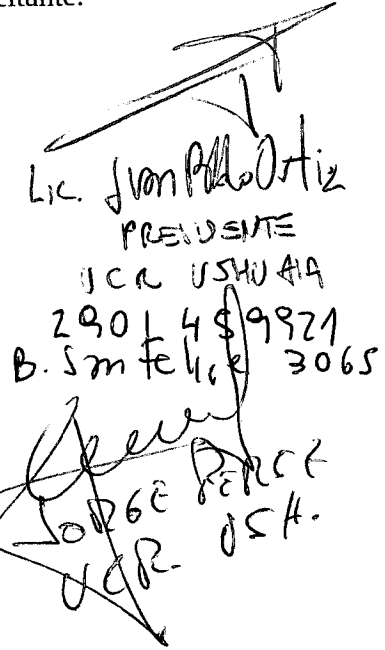 Lic. Juan Pablo Ortiz
PRESIDENTE
UCR USHUAIA
2901 459921
B. San Felipe 3065
JORGE
UCR. USH.